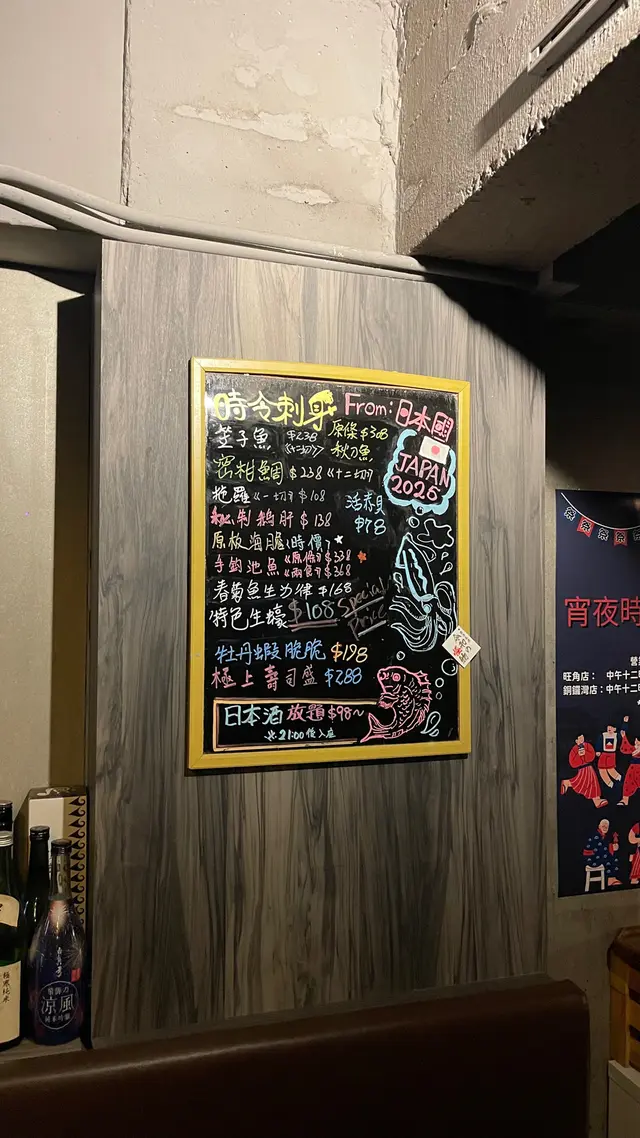 時令刺身 From:日本國
笠子魚 $238 《十二切》
原條 $308
秋刀魚
密柑鯛 $238 《十二切》
JAPAN
2026
拖羅 《一切》 $108
活赤貝
$78
私制鵝肝 $138
原板海膽 (時價)
手釣池魚 《原條》 $338
《兩食》 $368
春菊魚生力律 $168
特色生蠔 $108 Special Price
牡丹蝦脆脆 $198
極上壽司盛 $288
日本酒放題 $98~
21:00後入座
宵夜時
營
旺角店： 中午十二
銅鑼灣店：中午十二
涼風
純米吟釀
極寒純米